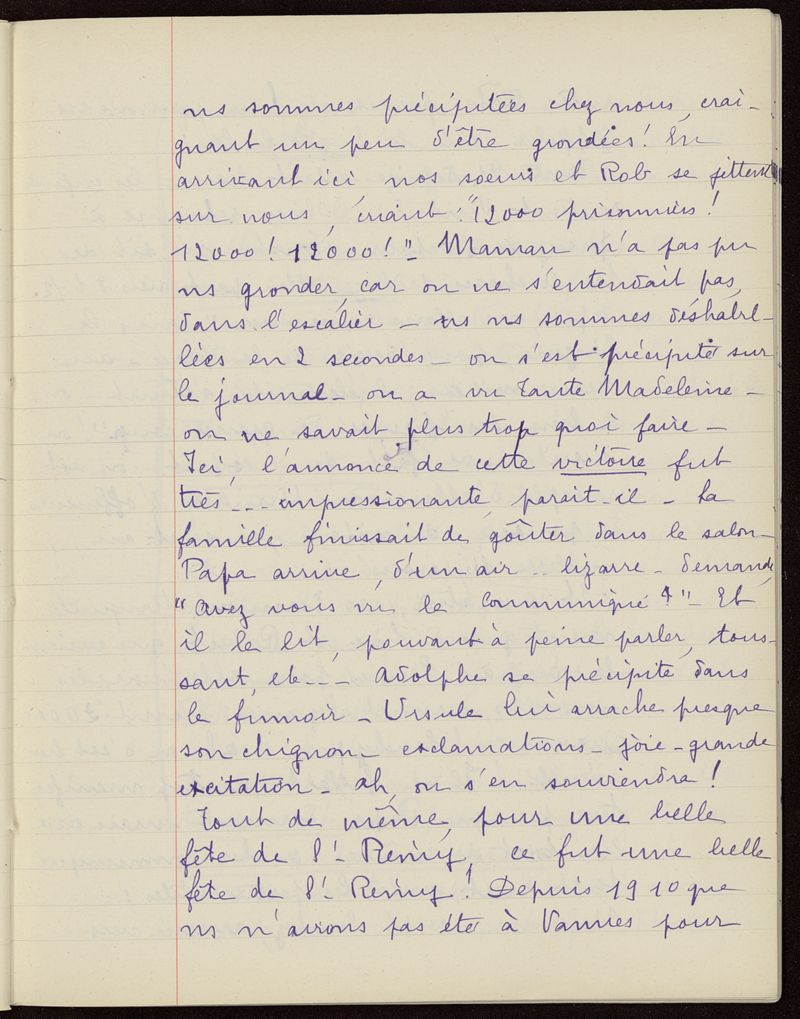 ns sommes précipitées chez nous, crai-
gnant un peu d'être grondées! En
arrivant ici nos soeurs et Rob se jittent
sur nous, criant: "12000 prisonniers!
12000! 12000!" – Maman n'a pas pu
ns gronder, car on ne s'entendait pas,
dans l'escalier – ns ns sommes déshabil-
lées en 2 secondes – on s'est précipité sur
le journal – on a vu Tante Madeleine –
on ne savait plus trop quoi faire –
Ici, l'annonce de cette victoire fut
très --- impressionante, parait-il – La
famille finissait de goûter dans le salon –
Papa arrive, d'un air .. bizarre – demande,
"avez vous vu le communiqué?" – Et
il le lit, pouvant à peine parler, tous-
sant, etc -- – Adolphe se précipite dans
le fumoir – Ursule lui arrache presque
son chignon – exclamations – joie – grande
excitation – ah, on s'en souviendra!
Tout de même, pour une belle
fête de St. Rémy, ce fut une belle
fête de St. Rémy! Depuis 1910 que
ns n'avions pas été à Vannes pour